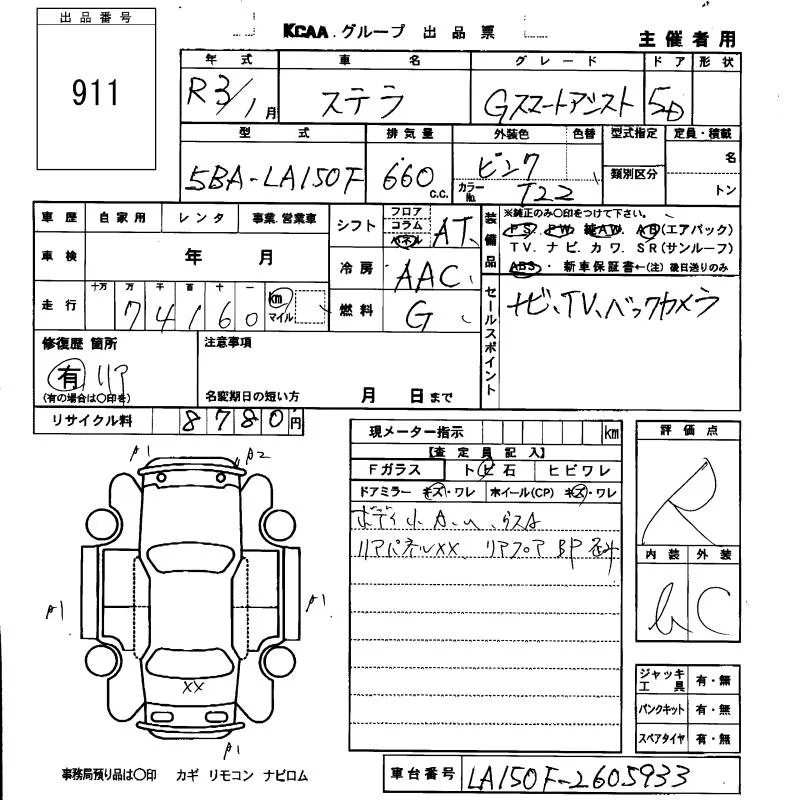 出品番号
911
KCAA.グループ 出品票
主催者用
年式 車名 グレード ドア 形状
R3/1月 ステラ Gスマートアシスト 5D
型式 排気量 外装色 色替 型式指定 定員・積載
5BA-LA150F 660 c.c. ピンク
カラーNo. T22
類別区分
名
トン
車歴 自家用 レンタ 事業.営業車
車検 年 月
走行 十万 万 千 百 十 一
74160 km マイル
シフト フロア コラム パネル AT
冷房 AAC
燃料 G
装備品
※純正のみ〇印をつけて下さい。
PS. PW. 純AW. AB(エアバック)
TV. ナビ. カワ. SR(サンルーフ)
ABS・ 新車保証書←(注) 後日送りのみ
セールスポイント
ナビ、TV、バックカメラ
修復歴 箇所
有 リア
(有の場合は〇印を)
注意事項
名変期日の短い方 月 日まで
リサイクル料 8780円
現メーター指示 km
【査定員記入】
Fガラス ト ビ 石 ヒビワレ
ドアミラー キズ・ワレ ホイール(CP) キズ・ワレ
ボディ小A.u.
リアパネルXX、リアフロア BP
評価点
R
内装 外装
C
ジャッキ工具 有・無
パンクキット 有・無
スペアタイヤ 有・無
A1
A2
A1
A1
XX
A1
事務局預り品は〇印 カギ リモコン ナビロム
車台番号 LA150F-2605933